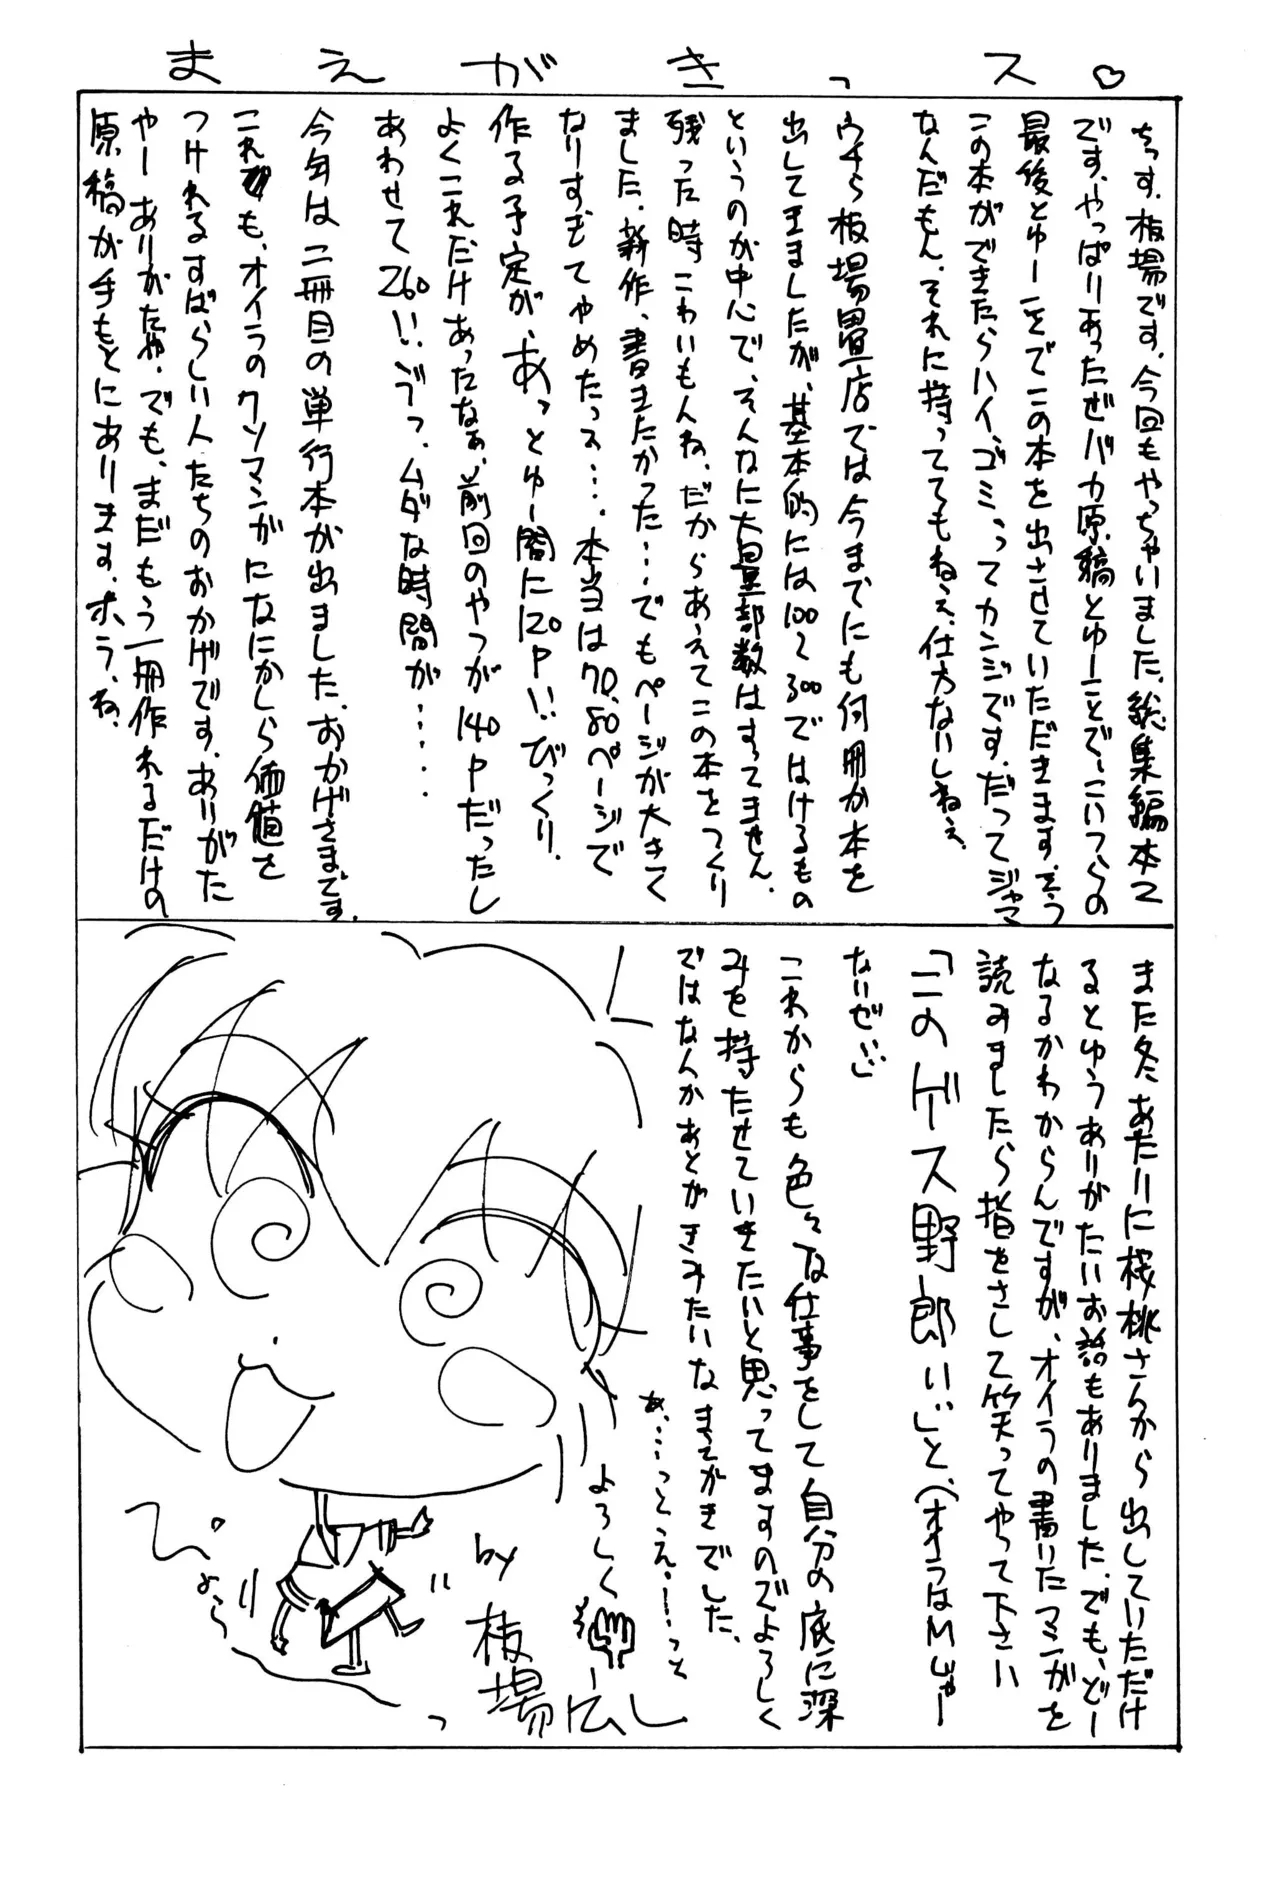 まえがきっス♡
ちっす。板場です。今回もやっちゃいました。総集編本マ
です。やっぱりあったぜバカ原稿とゆーことで、こいつらの
最後とゆーことでこの本を出させていただきます。そう
この本ができたらハイ、ゴミ、ってカンジです。だってジャマ
なんだもん。それに持っててもねぇ、仕方ないしねぇ。
ウチら板場畳店では今までにも何冊か本を
出してきましたが、基本的には100〜300ではけるもの
というのが中心で、そんなに大量部数はすってません。
残った時こわいもんね。だからあえてこの本をつくり
ました。新作、書きたかった…でもページが大きく
なりすぎてやめたっス…。本当は70、80ページで
作る予定が、あっとゆー間に120P!!びっくり。
よくこれだけあったなぁ、前回のやつが140Pだったし
あわせて260!!ブっ、ムダな時間が……
今年は二冊目の単行本が出ました。おかげさまです。
これも、オイラのクソマンガになにかしら価値を
つけれるすばらしい人たちのおかげです。ありがた
やー ありがたや。でも、まだもう一冊作れるだけの
原稿が手もとにあります。ホラ、ね。
また冬あたりに桜桃さんから出していただけ
るとゆうありがたいお話もありました。でも、どー
なるかわからんですが、オイラの書いたマンガを
読みましたら指をさして笑ってやって下さい
「このゲース野郎い!!」と、(オイラはMじゃー
ないぜ!!)
これからも色々な仕事をして自分の底に深
みを持たせていきたいと思ってますのでよろしく
ではなんかあとがきみたいなまえがきでした。
あ……っとえーーっと
よろしく
by 板場広し
ぴょろっ